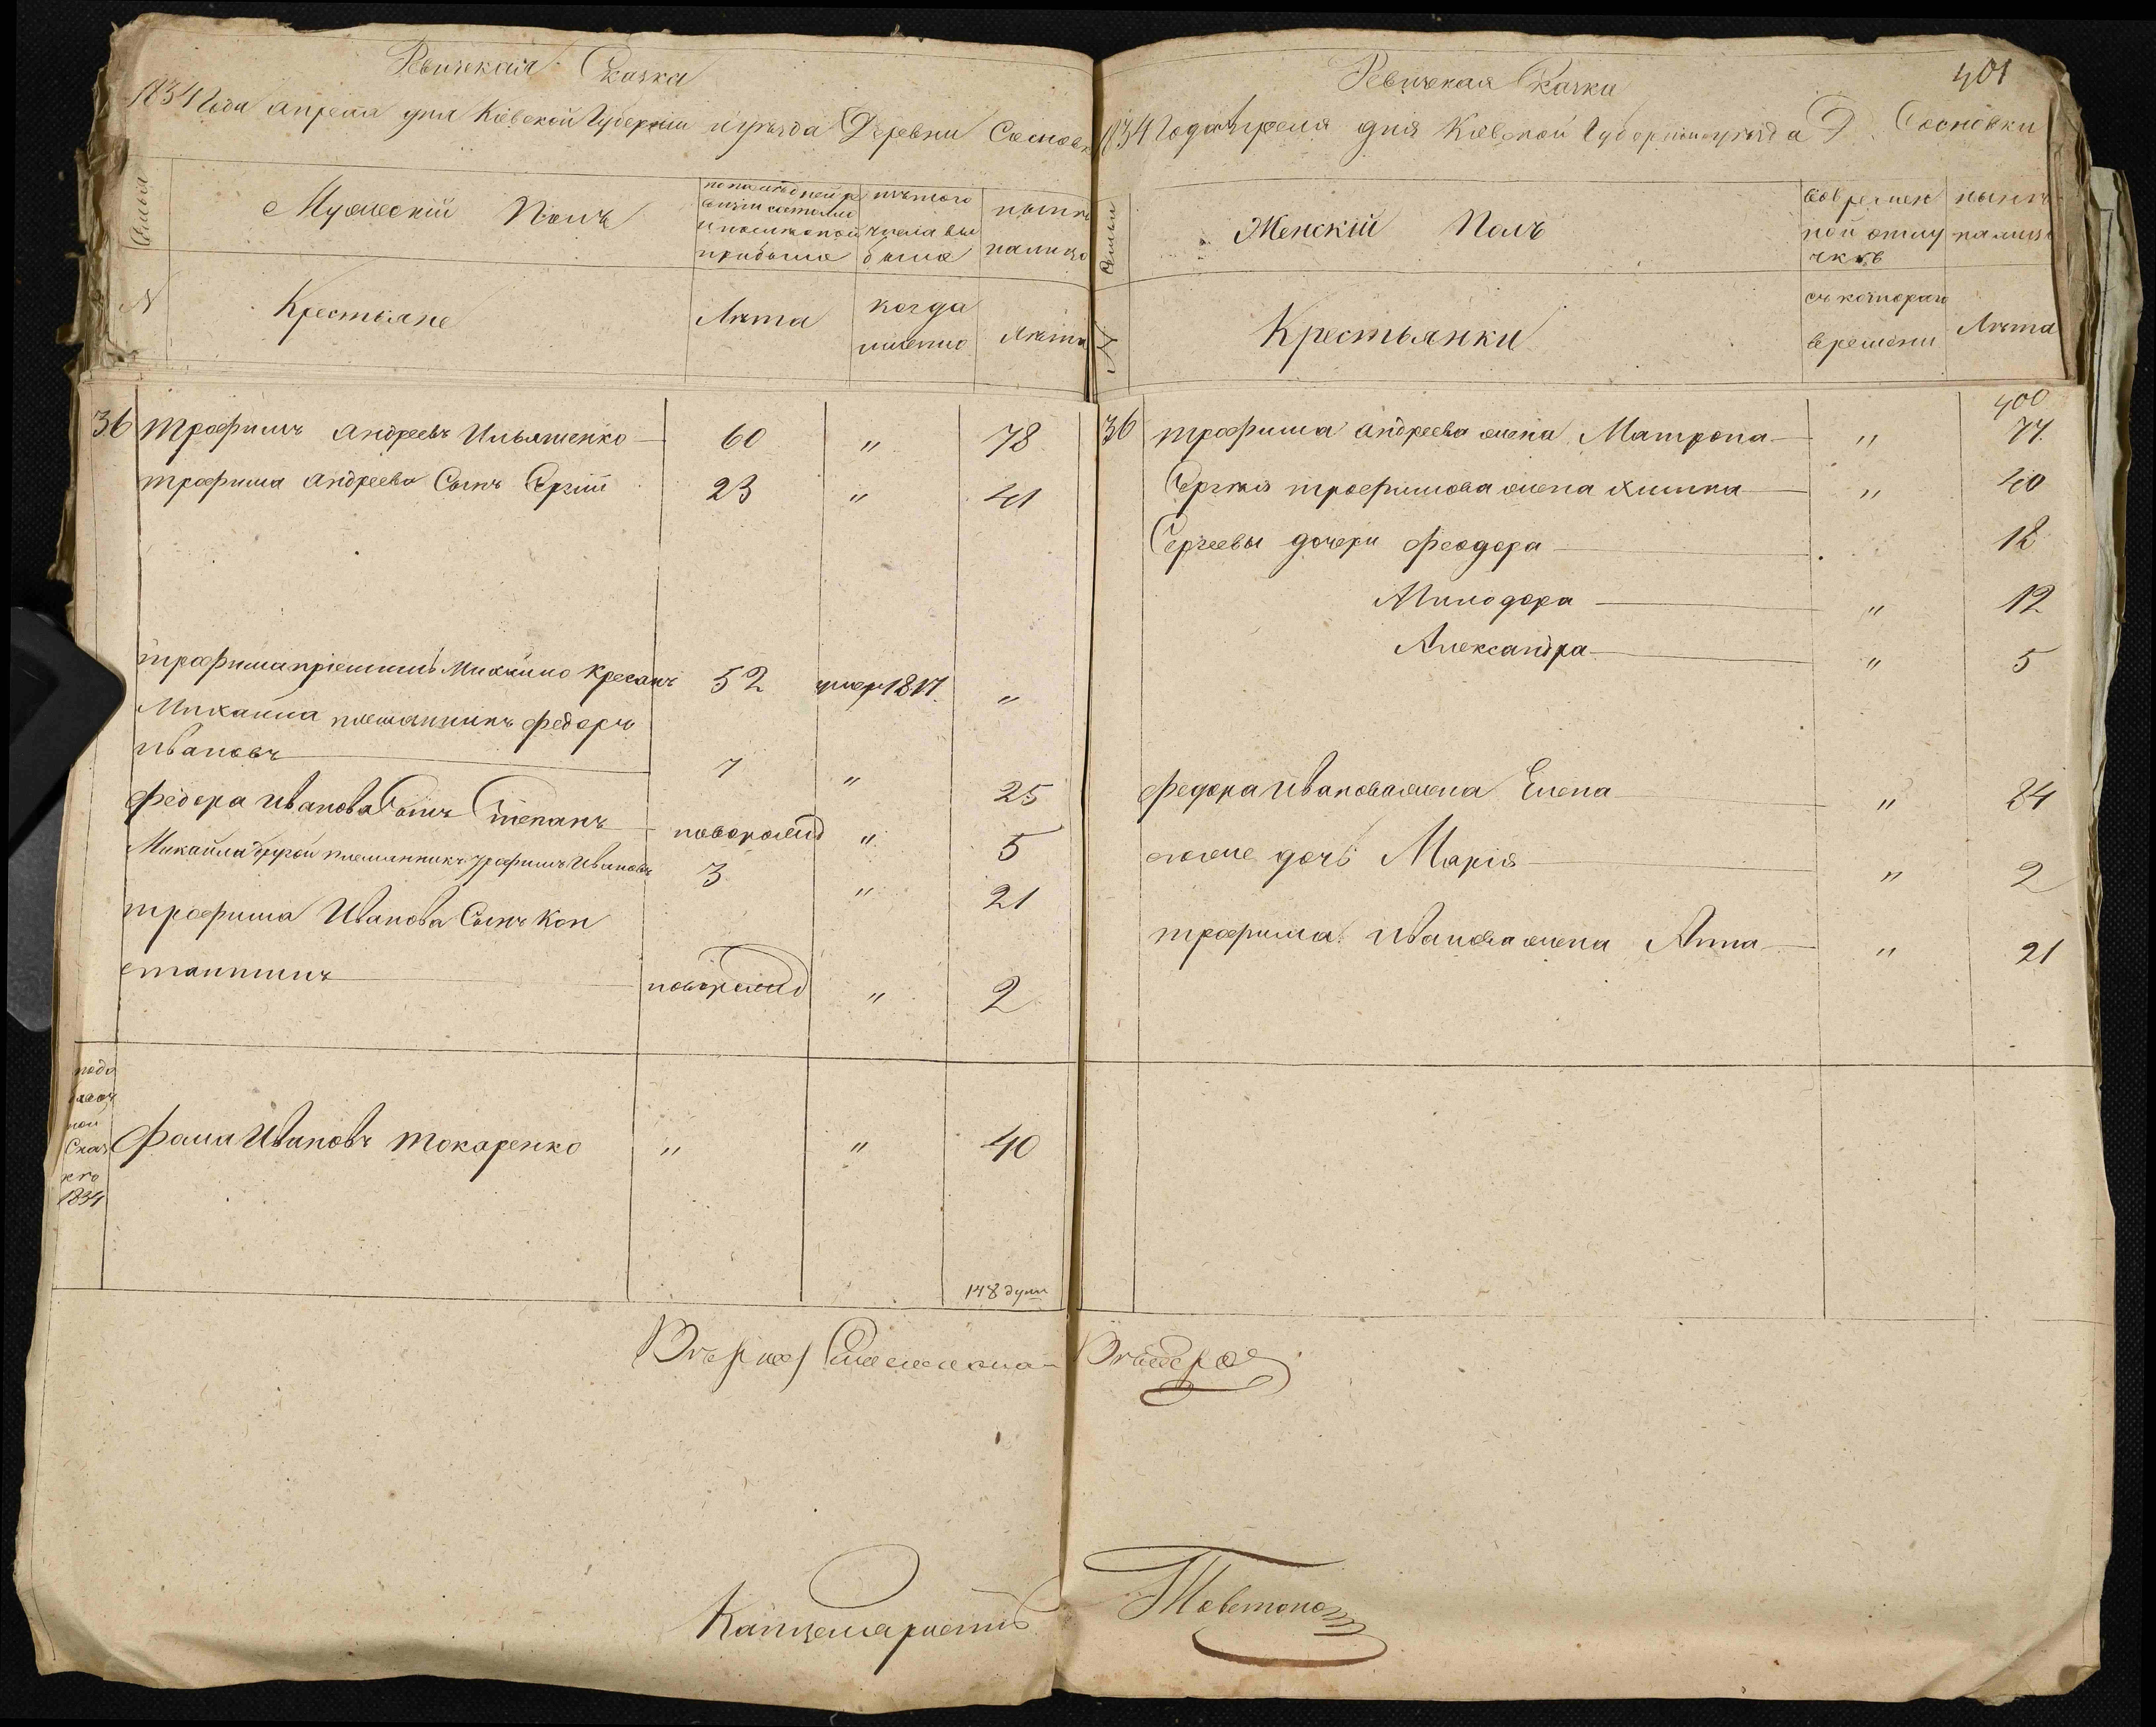 Ревизская Сказка
1834 Года апреля дня Кіевской Губерніи и уезда Деревни Сосновк
Семьи
Мужескій Полъ
по последней ре
визіи состояло
и после оной
прибыло
изъ того
числа вы
было
ныне
на лицо
N
Крестьяне
Лета
когда
именно
Лета
36 трофимъ андреевъ Ильяшенко 60 " 78
трофима андреева Сынъ Сергій 23 " 41
трофима пріемышъ Михайло 52 умер 1817 "
Михайла племянникъ федоръ
ивановъ 7 " 25
федора иванова Сынъ Степанъ новорожд " 5
Михайла другой племянникъ трофимъ Ивановъ 3 " 21
трофима Иванова Сынъ Кон
стантинъ новорожд " 2
Сказ
1834
фома Ивановъ токаренко " " 40
148 душъ
Канцеляристъ
401
Ревизская Сказка
1834 Года Апреля дня Кіевской Губерніи и уезда Д. Сосновки
Семьи
Женскій Полъ
во времен
ной отлу
чке
ныне
на лицо
N
Крестьянки
съ котораго
времени
Лета
400
36 трофима андреева жена Матрона " 77
Сергія трофимова жена " 40
Сергеевы дочери феодора 18
Минодора " 12
Александра " 5
федора Иванова жена Елена " 24
ихже дочь Марія " 2
трофима Иванова жена Анна " 21